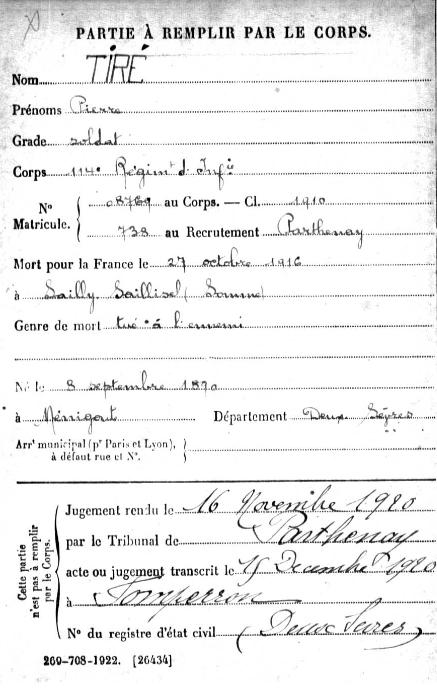 PARTIE À REMPLIR PAR LE CORPS.
Nom TIRÉ
Prénoms Pierre
Grade soldat
Corps 114e Régimt d'Infie
No Matricule. 08769 au Corps. — Cl. 1910
738 au Recrutement Parthenay
Mort pour la France le 27 octobre 1916
à Sailly Saillisel (Somme)
Genre de mort tué à l'ennemi
Né le 8 septembre 1890
à Ménigout Département Deux Sèvres
Arrt municipal (pr Paris et Lyon),
à défaut rue et No.
Cette partie
n'est pas à remplir
par le Corps.
Jugement rendu le 16 Novembre 1920
par le Tribunal de Parthenay
acte ou jugement transcrit le 15 Decembre 1920
à Fomperron
No du registre d'état civil (Deux Sevres)
269-708-1922. [26434]